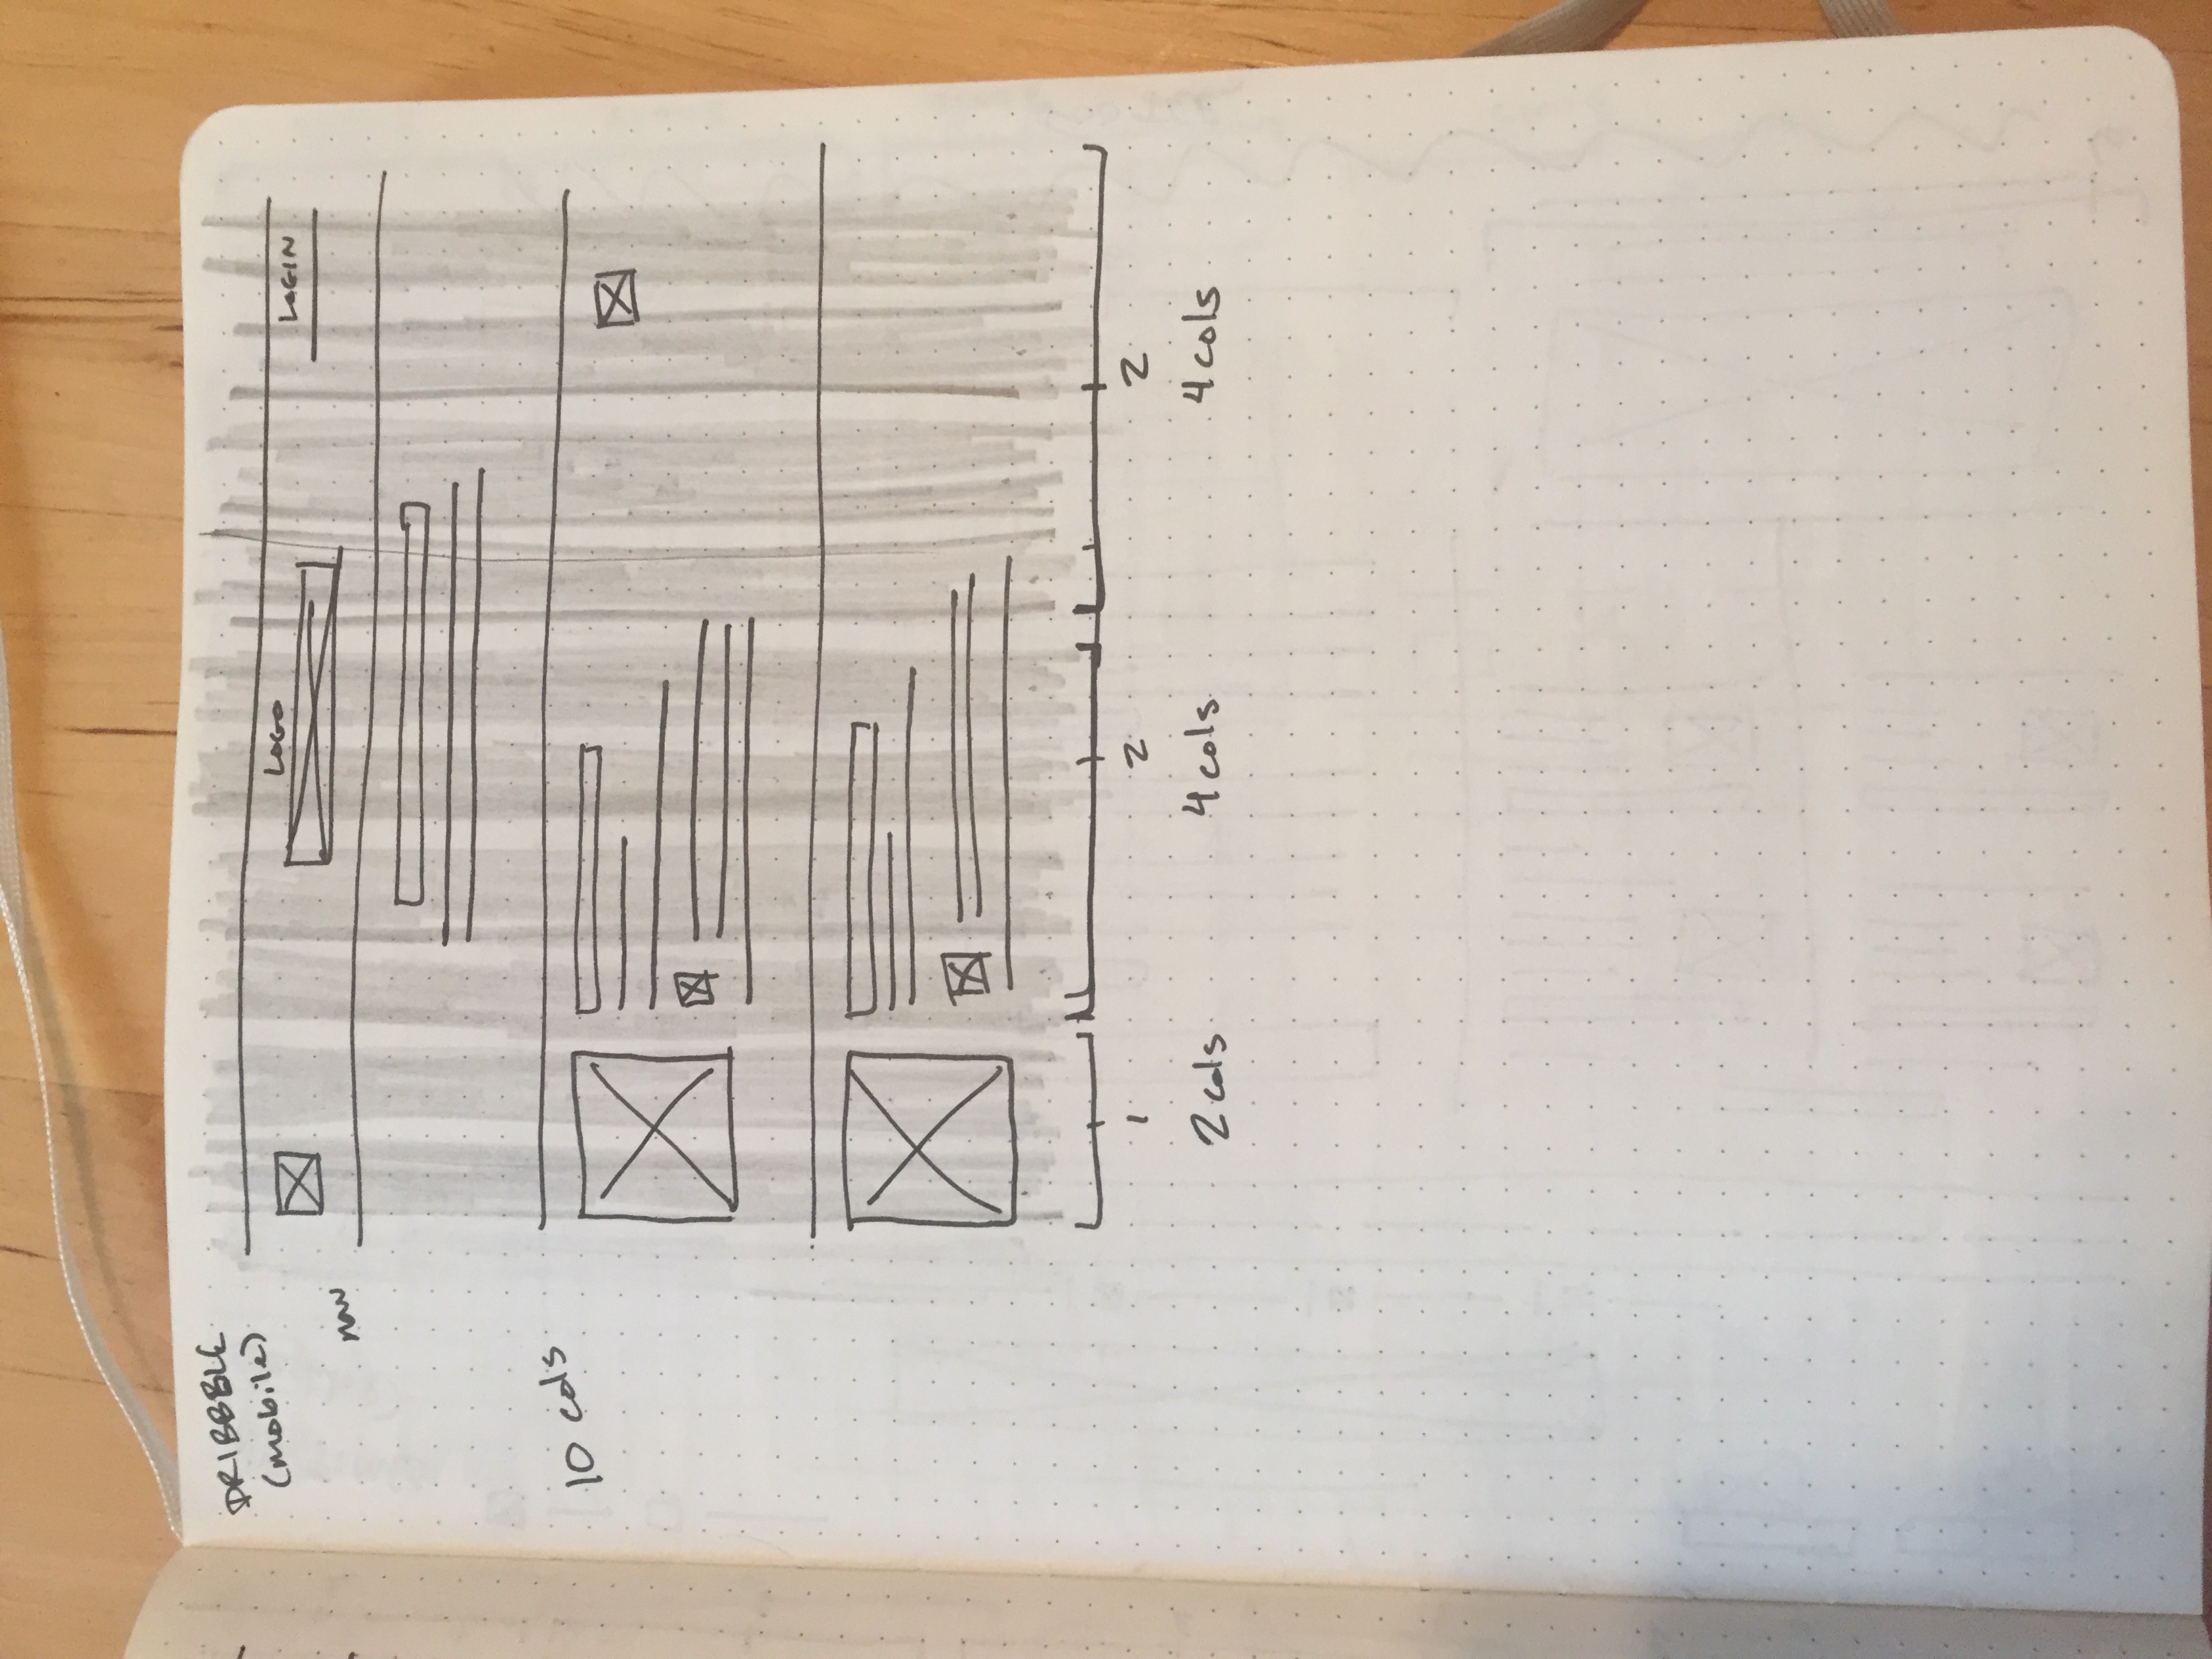 DRIBBBLE
(mobile)
LOGO
LOGIN
nav
10 cols
1 2 2
2 cols 4 cols 4 cols